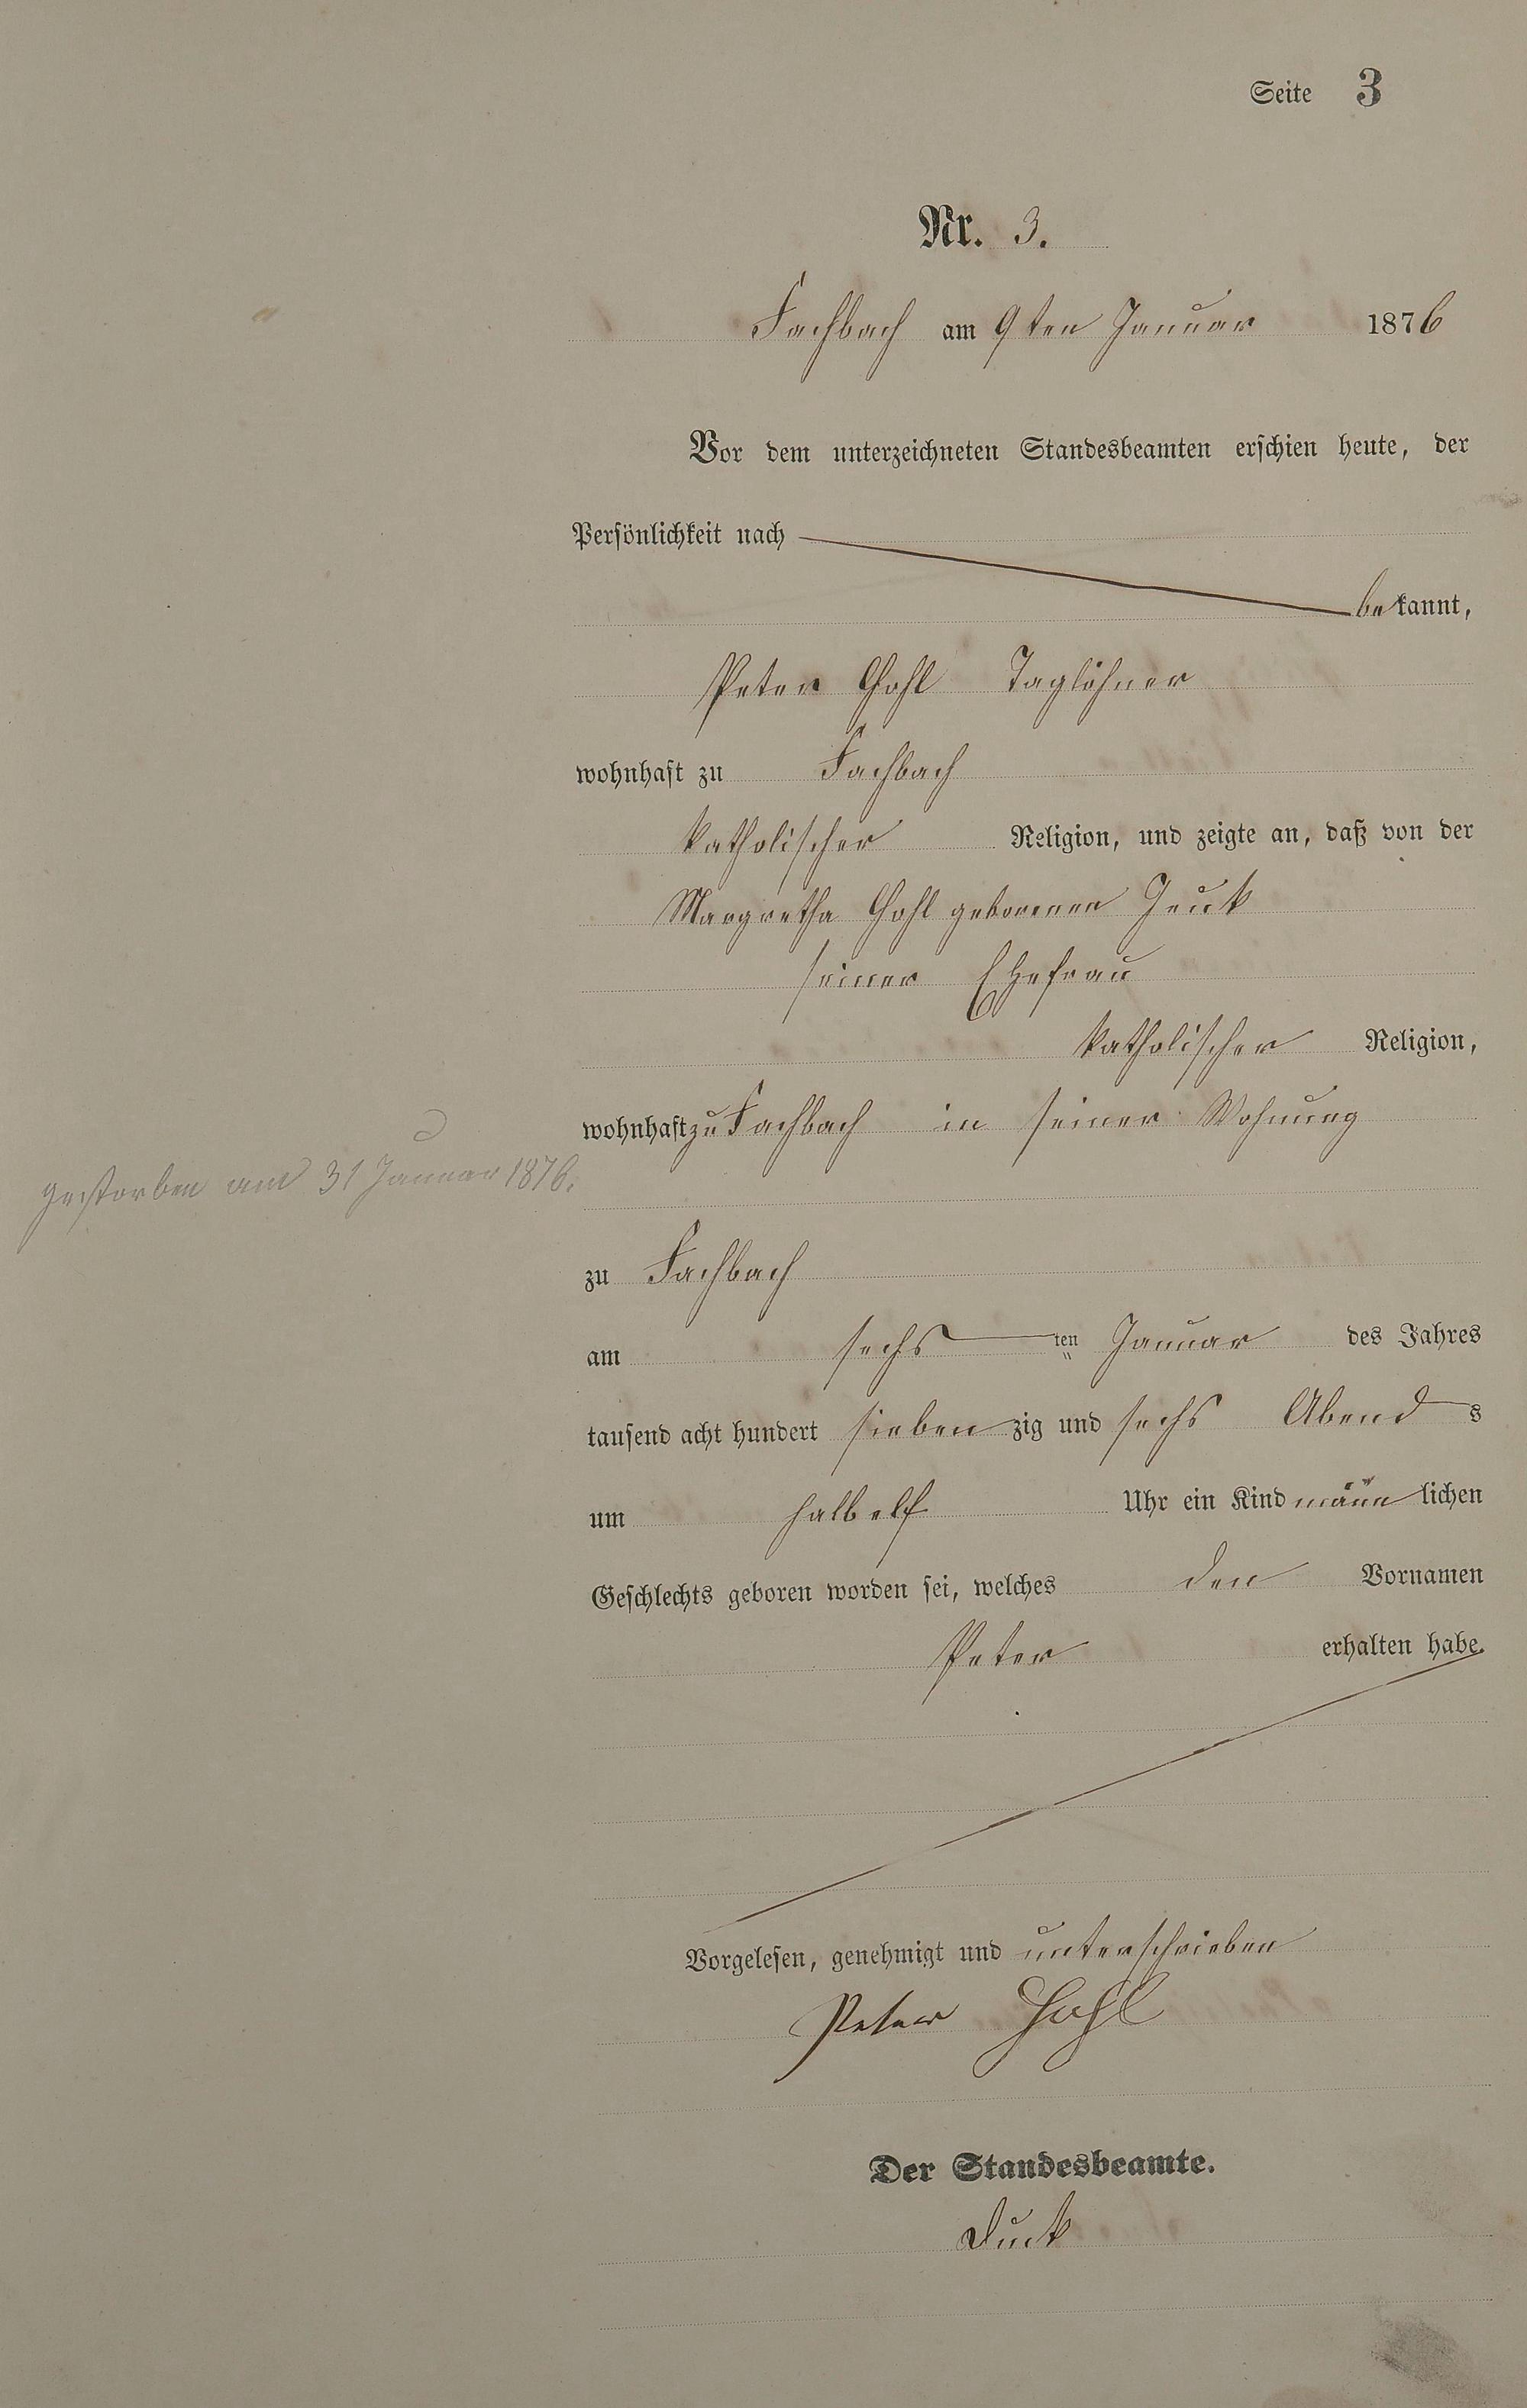 Seite 3
Nr. 3.
Fachbach am 9ten Januar 1876
Vor dem unterzeichneten Standesbeamten erschien heute, der
Persönlichkeit nach
bekannt,
Peter Gohl Taglöhner
wohnhaft zu Fachbach
katholischer Religion, und zeigte an, daß von der
Margretha Gohl geborenen Jeuk
seiner Ehefrau
katholischer Religion,
wohnhaft zu Fachbach in seiner Wohnung
gestorben am 31 Januar 1876.
zu Fachbach
am sechsten Januar des Jahres
tausend acht hundert siebenzig und sechs Abends
um halb elf Uhr ein Kind männlichen
Geschlechts geboren worden sei, welches den Vornamen
Peter erhalten habe.
Vorgelesen, genehmigt und unterschrieben
Peter Gohl
Der Standesbeamte.
Duck